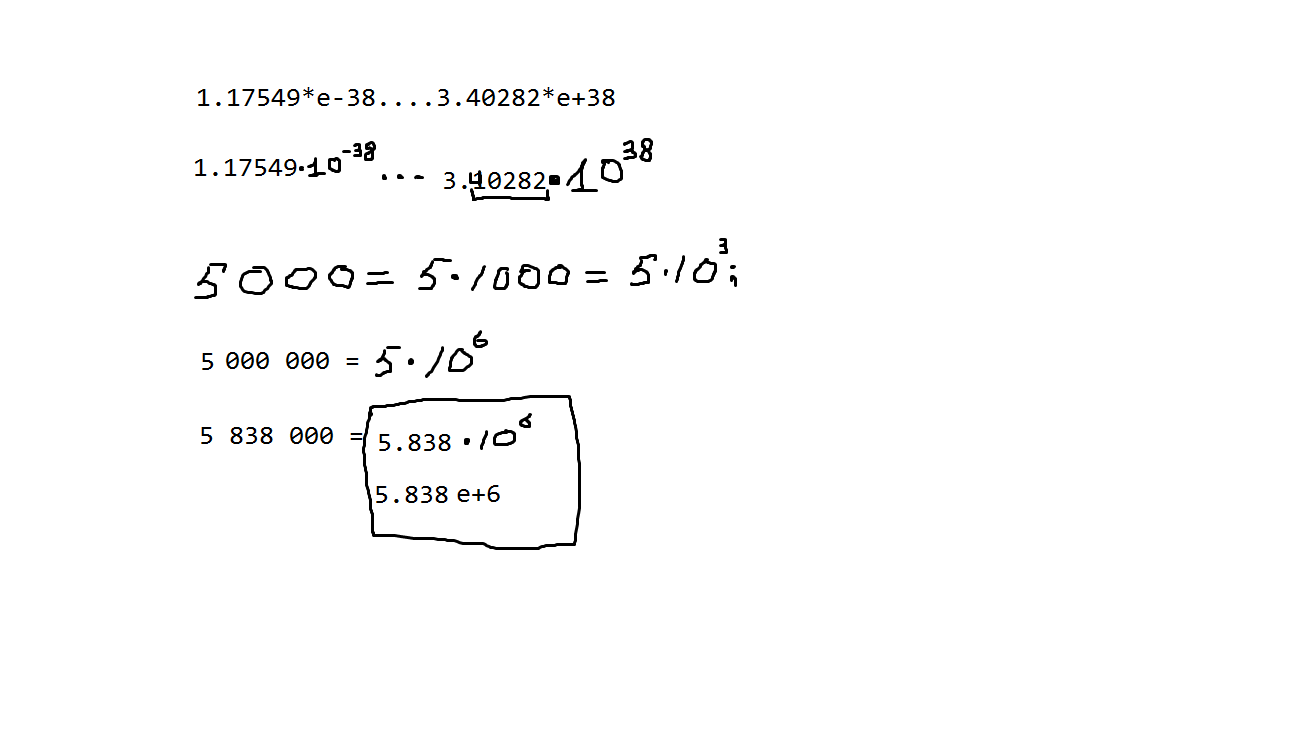 1.17549*e-38....3.40282*e+38
1.17549·10⁻³⁸ ... 3.40282·10³⁸
5000 = 5·1000 = 5·10³;
5 000 000 = 5·10⁶
5 838 000 = 5.838·10⁶
5.838 e+6